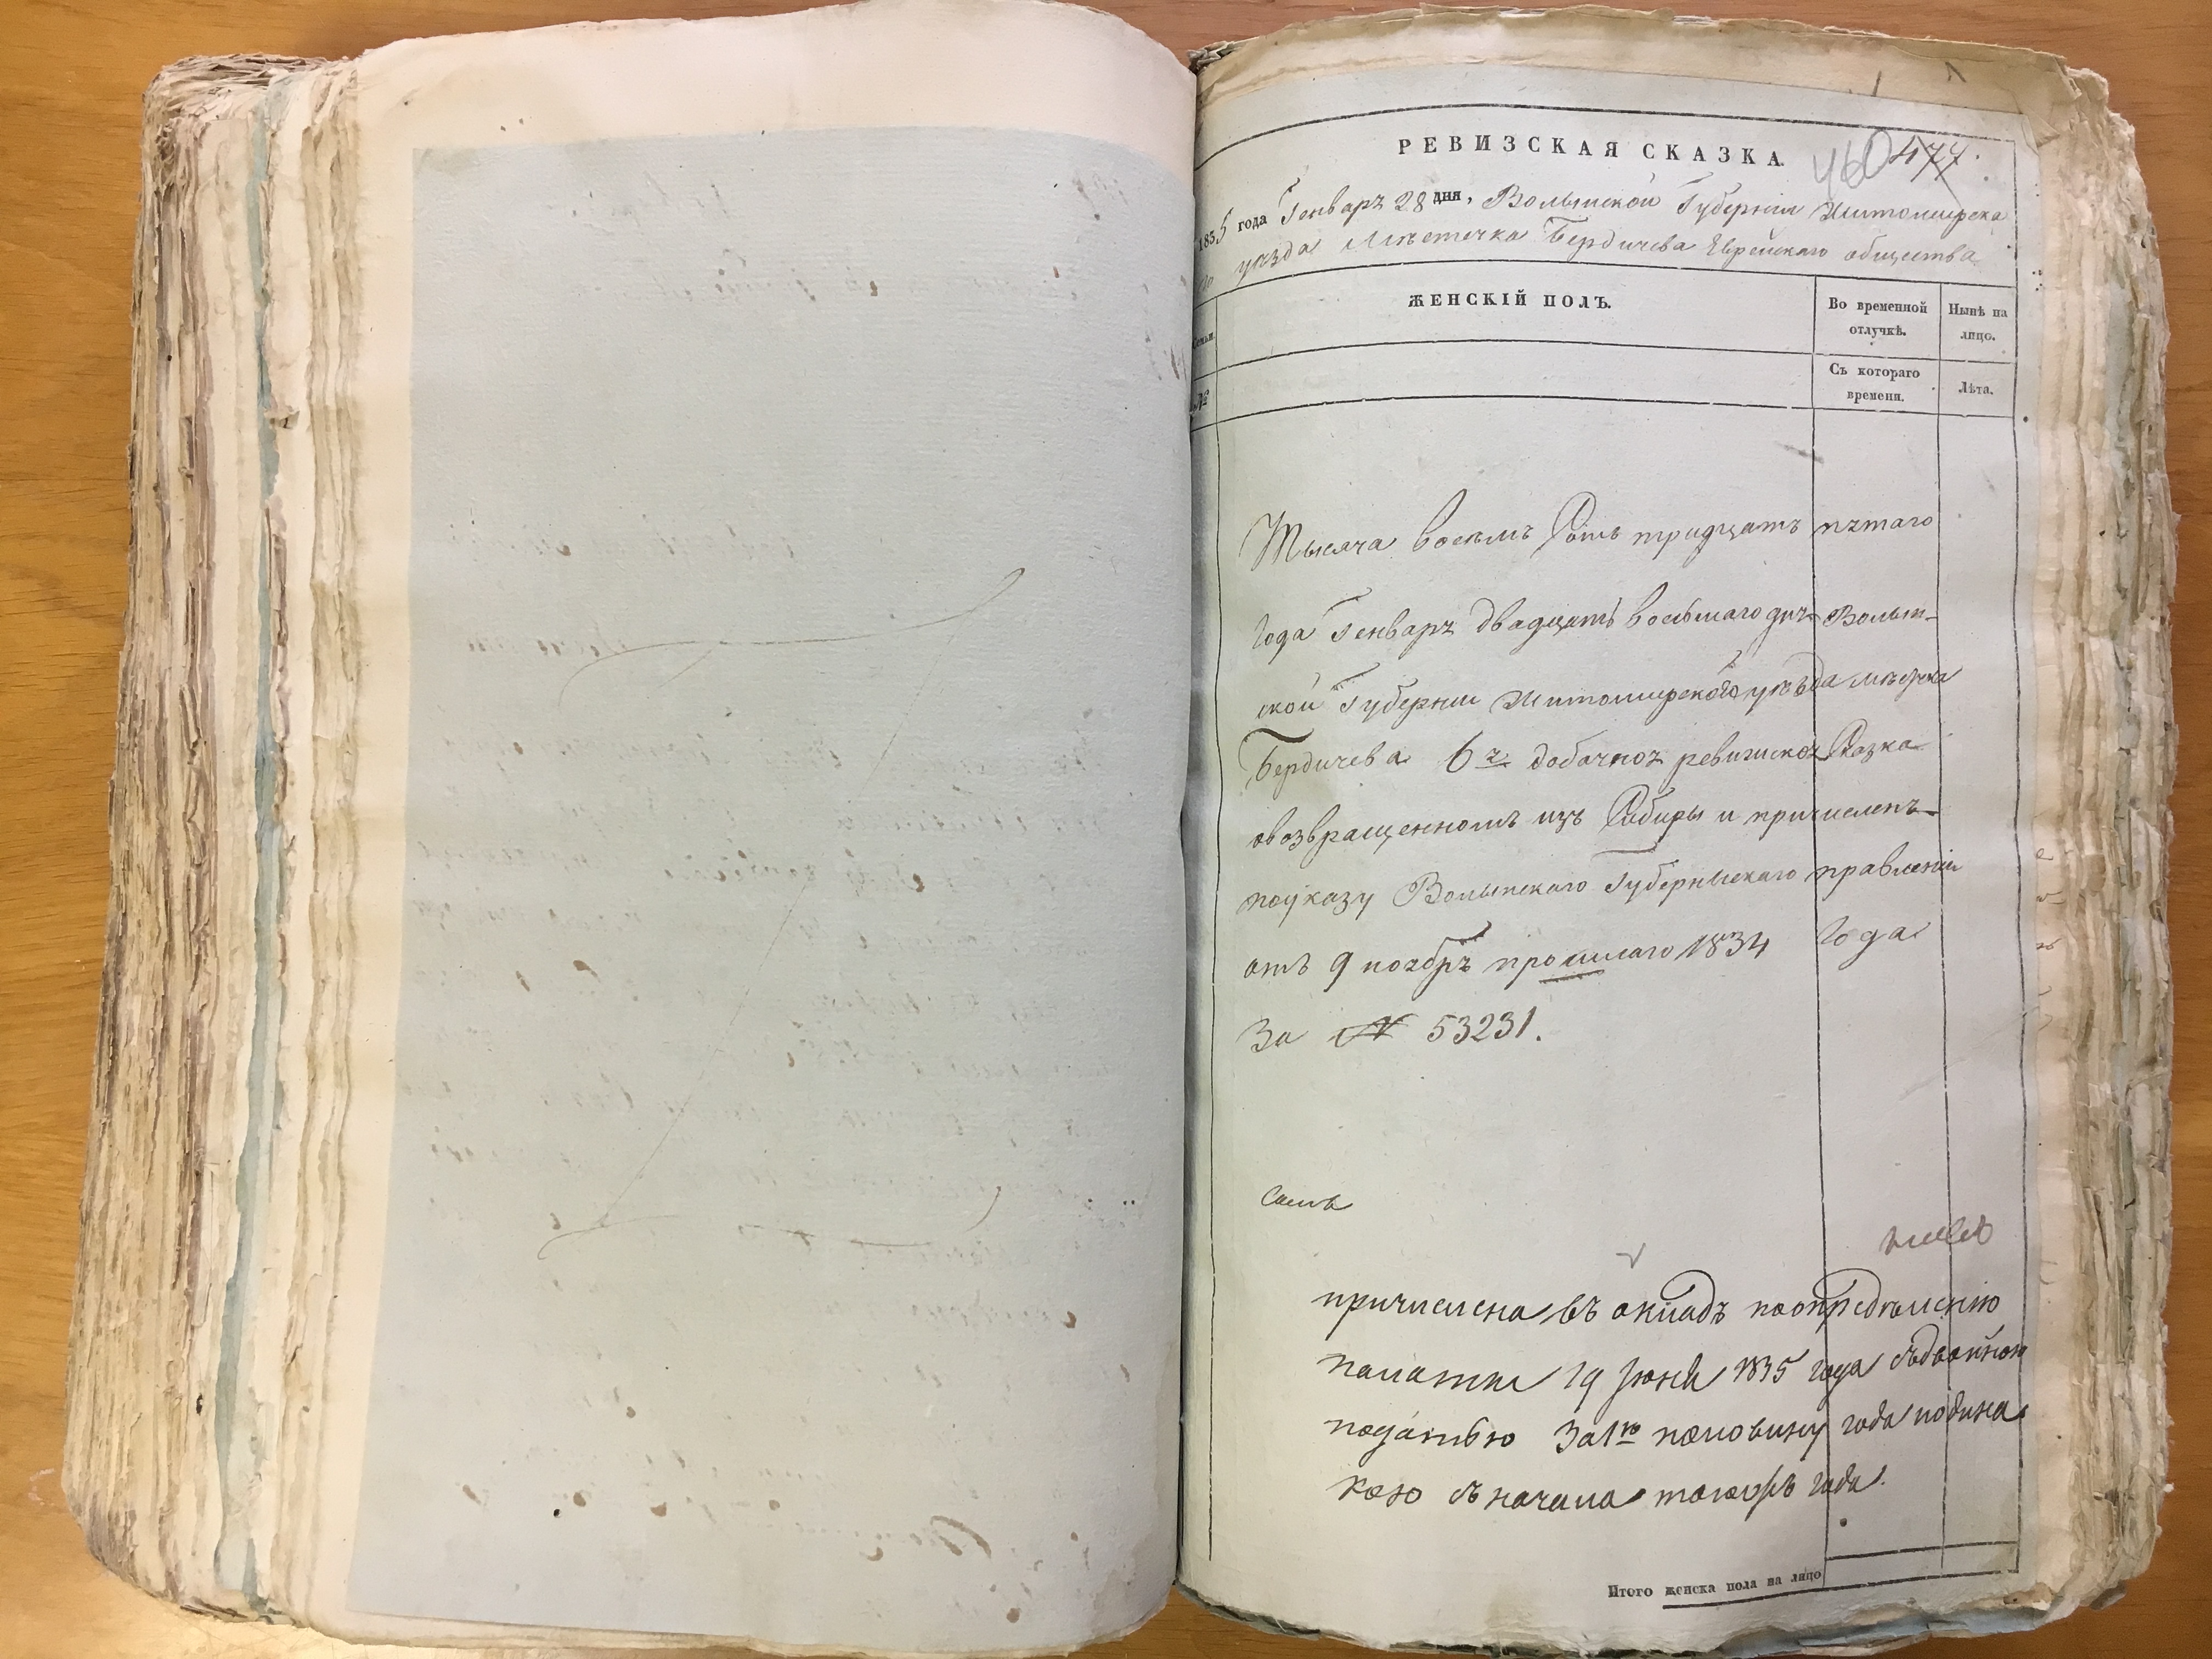 РЕВИЗСКАЯ СКАЗКА.
460 477.
1835 года Генваря 28 дня, Волынской Губернии Житомирска
го уѣзда Мѣстечка Бердичева Еврейскаго общества
Семьи.
ЖЕНСКІЙ ПОЛЪ.
Во временной отлучкѣ.
Нынѣ на лицо.
№
Съ котораго времени.
Лѣта.
Тысяча восемъ Сотъ тридцать пятаго
года Генваря двадцать восьмаго дня Волын-
ской Губернии Житомирскаго уѣзда мѣстечка
Бердичева 6я добочноя ревизскоя Сказка
овозвращенномъ изъ Сибиры и причислен-
поуказу Волынскаго Губернскаго правления
отъ 9 ноября прошлаго 1834 года
За № 53231.
причислена въ окладъ поопредѣлению
палаты 19 Июня 1835 года съдвойною
податью За 1ю половину года
кою съ начала тогожъ года.
Итого женска пола на лицо